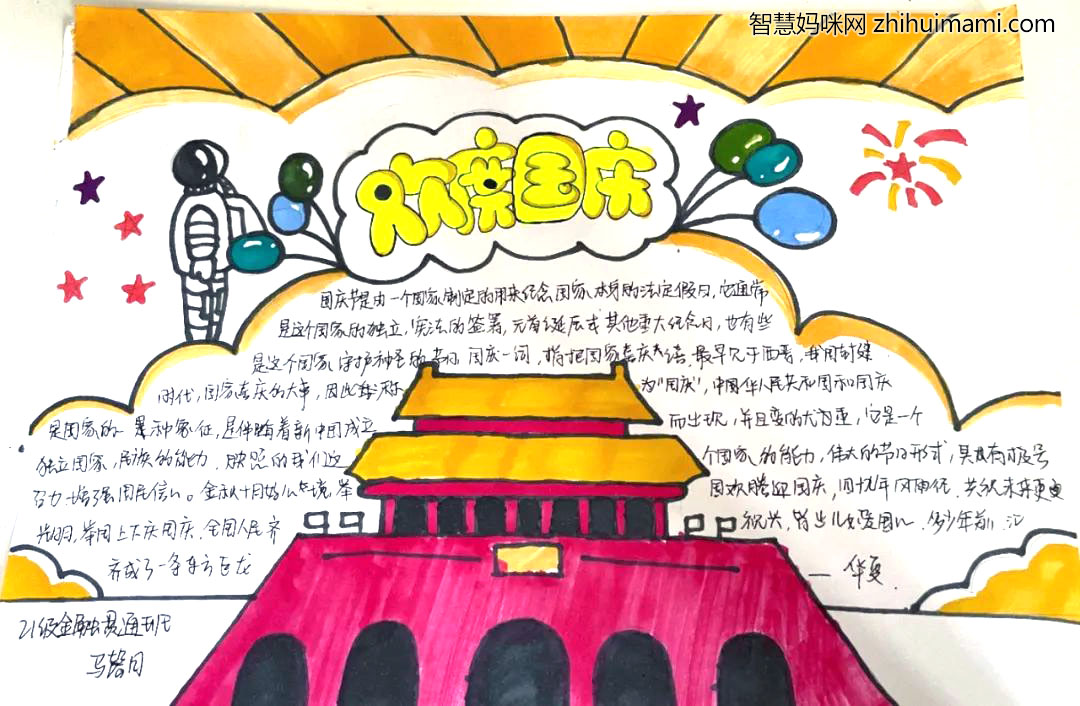 智慧妈咪网 zhihuimami.com
欢度国庆
国庆节是由一个国家制定的用来纪念国家本身的法定假日,它通常
是这个国家的独立,宪法的签署,元首诞辰或其他重大纪念日,也有些
是这个国家守护神圣的节日 国庆一词,指把国家喜庆,最早见于西晋,我国封建
时代,国家喜庆的大事,因此称 为"国庆",中国华人民共和国和国庆
是国家的一种象征,是伴随着新中国成立 而出现,并且变的尤为重,它是一个
独立国家,民族的能力,映照的我们这 个国家的能力,伟大的节日形式,具具有号
努力增强国民信心。金秋十月好心境,举 国欢腾迎国庆,
光明,举国上下庆国庆,全国人民齐 祝兴,爱国心,
齐成了一条东方巨龙 — 华夏.
21级金融易通班
马馨月